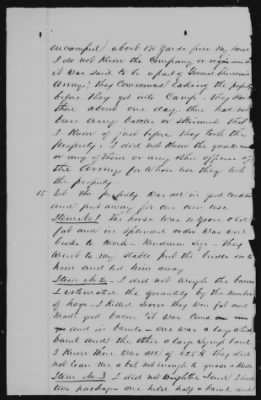 encamped about 150 yards from my house
I do not know the Company or regiment
it was said to be a part of General Sherman's
Army; they commenced taking the property
before they got into Camp. They staid
there about one day there had not
been any battle or skirmish that
I know of just before they took the
property. I did not know the quarter
or any of them or any other officer of
the Army for whose use they took
the property
The property was all in good condition
and put away for our own use
Item No 1 The horse was 10 years old
fat and in splendid order was well
broke to work - Medium size - they
went to my stable put the bridle on to
him and led him away
Item No 2 - I did not weigh the bacon
I estimated the quantity by the number
of hogs I killed. they was fat and
made good bacon it was
and in barrels - one was a large
barrel and the other a large
I know there was all of 625 lb they did
not leave me a bit not enough to grease a
Item No 3 I did not weigh the lard I had
two packages one held half a barrel and